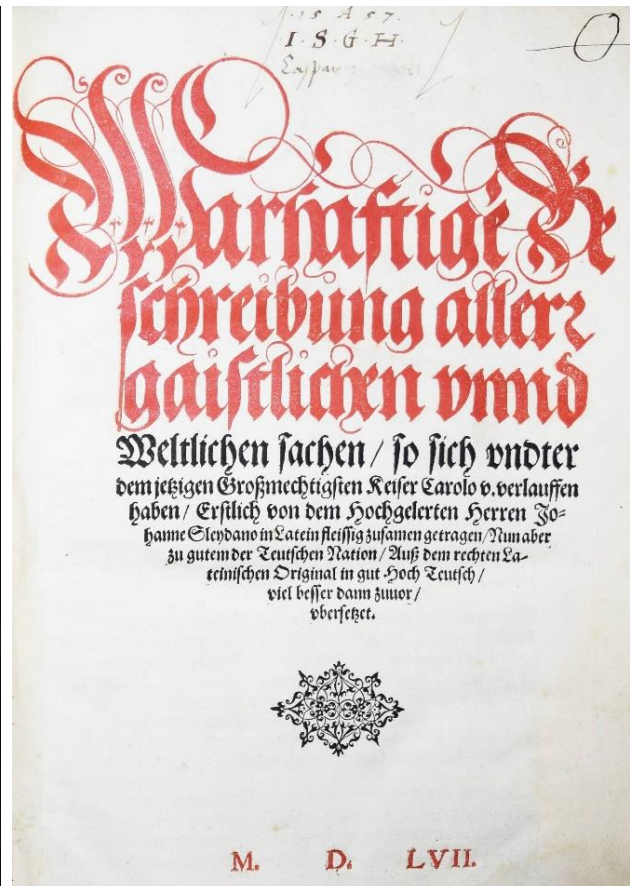 15 A 57.
I. S. G. H.
Caspar
Warhaftige Be
schreibung aller
gaistlichen vnnd
Weltlichen sachen / so sich vndter
dem jetzigen Großmechtigsten Keiser Carolo v. verlauffen
haben / Erstlich von dem Hochgelerten Herren Jo=
hanne Sleydano in Latein fleissig zusamen getragen / Nun aber
zu gutem der Teutschen Nation / Auß dem rechten La-
teinischen Original in gut Hoch Teutsch /
viel besser dann zuuor /
vbersetzet.
M. D. LVII.